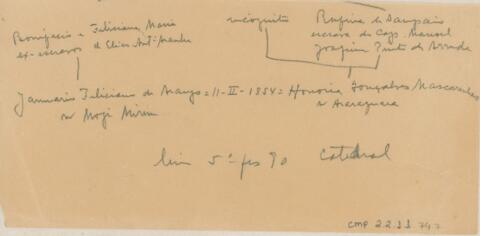 Bonifacio e Feliciana Maria
ex-escravos de Elias Antº Aranha
incógnito
Rufina de Sampaio
escrava do Capº Manoel
Joaquim Pinto de Arruda
Januario Feliciano de Araujo = 11-II-1884 = Honoria Gonçalves Mascarenhas
n Mogi Mirim
n Araraquara
liv. 5º fls 90 Catedral
CMP 2.2.33 747